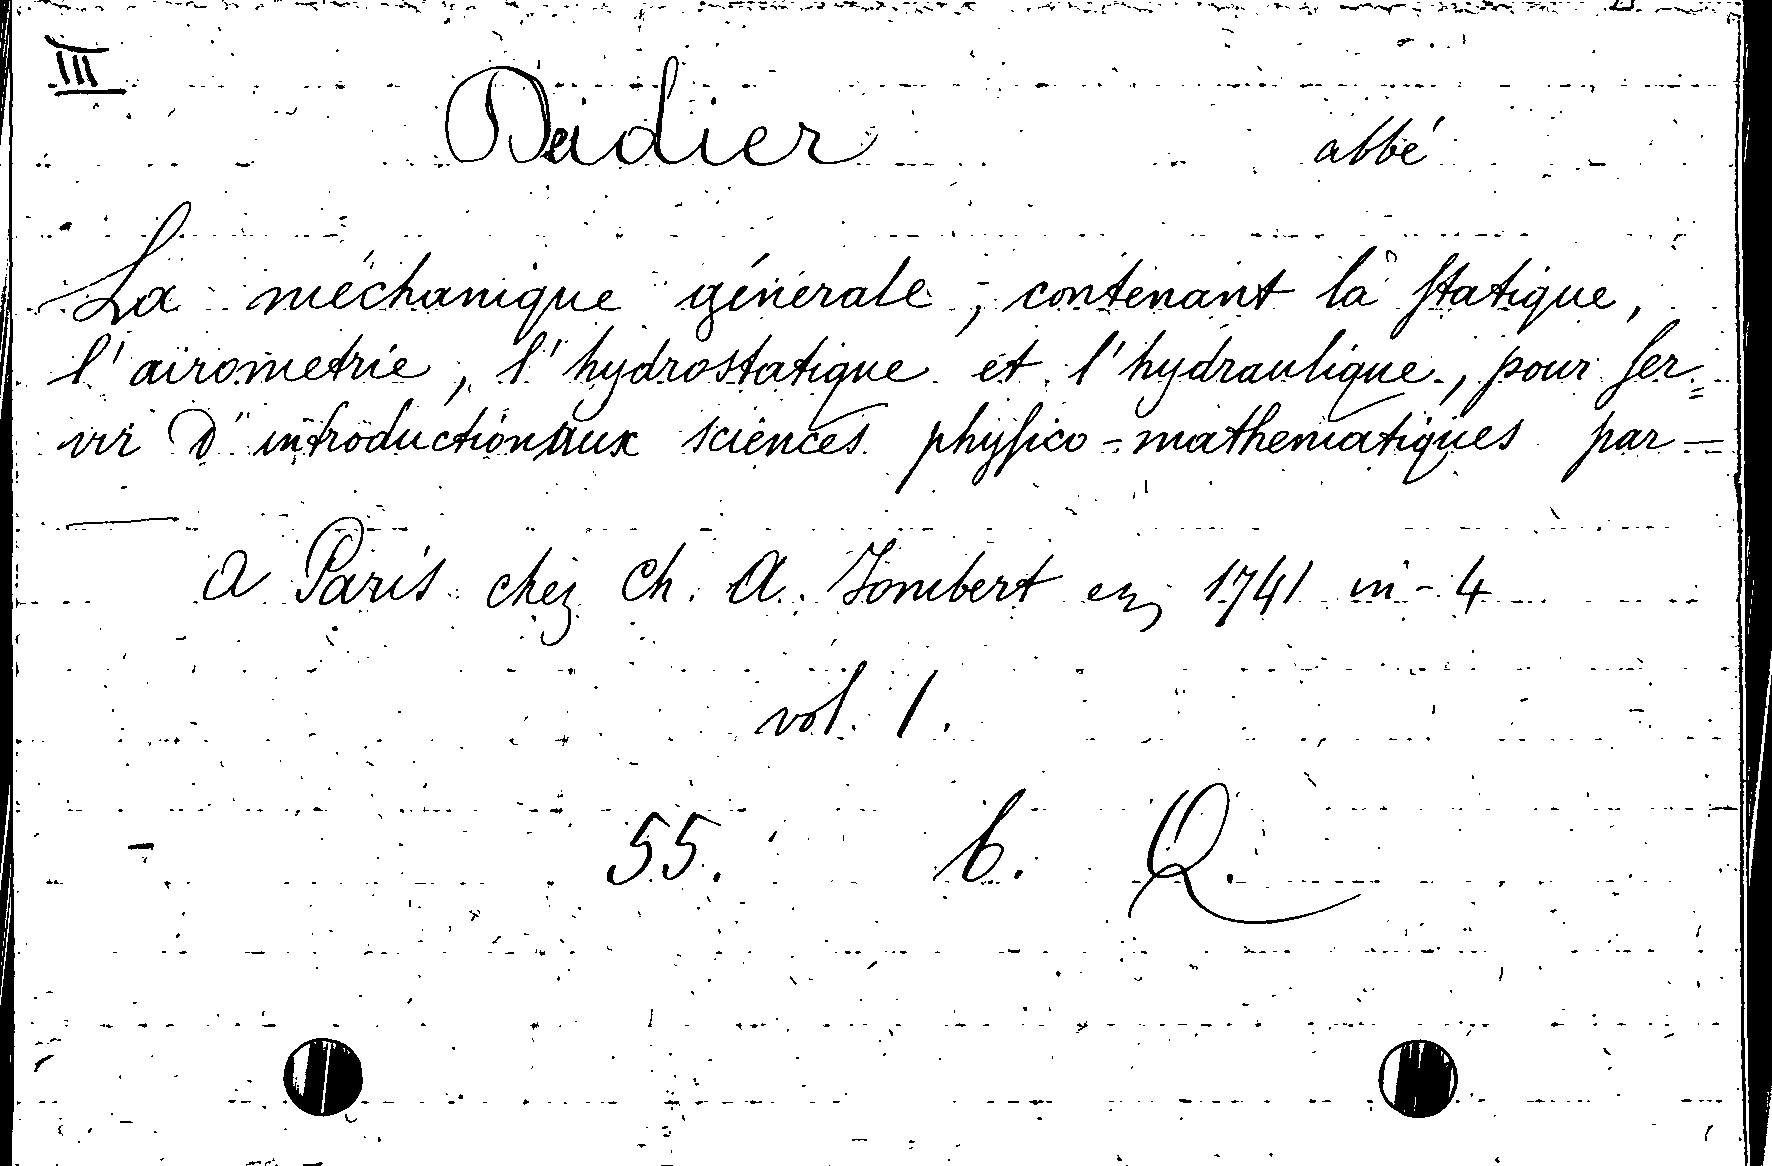 III
Deidier abbé
La méchanique générale, contenant la statique,
l'airometrie, l'hydrostatique et l'hydraulique, pour ser=
vir d'introduction aux sciences physico=mathematiques par —
—
a Paris chez Ch. A. Jombert en 1741 in-4
vol. 1.
55. b. Q.